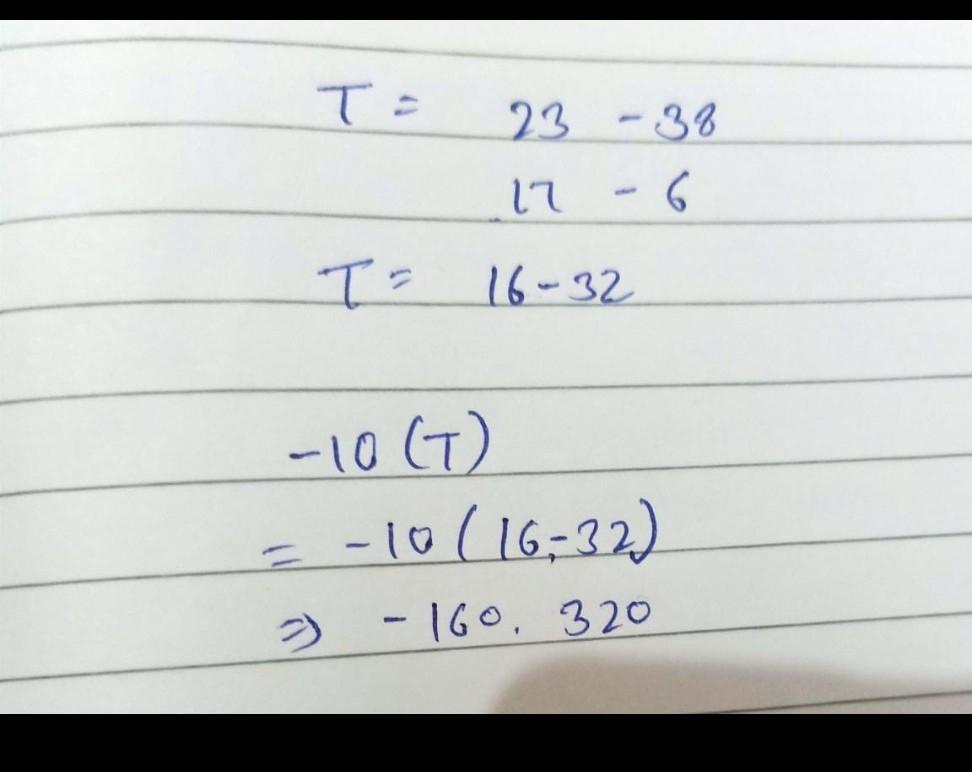 T = 23 - 38
17 - 6
T = 16 - 32
-10 (T)
= -10 ( 16,-32)
⇒ -160. 320